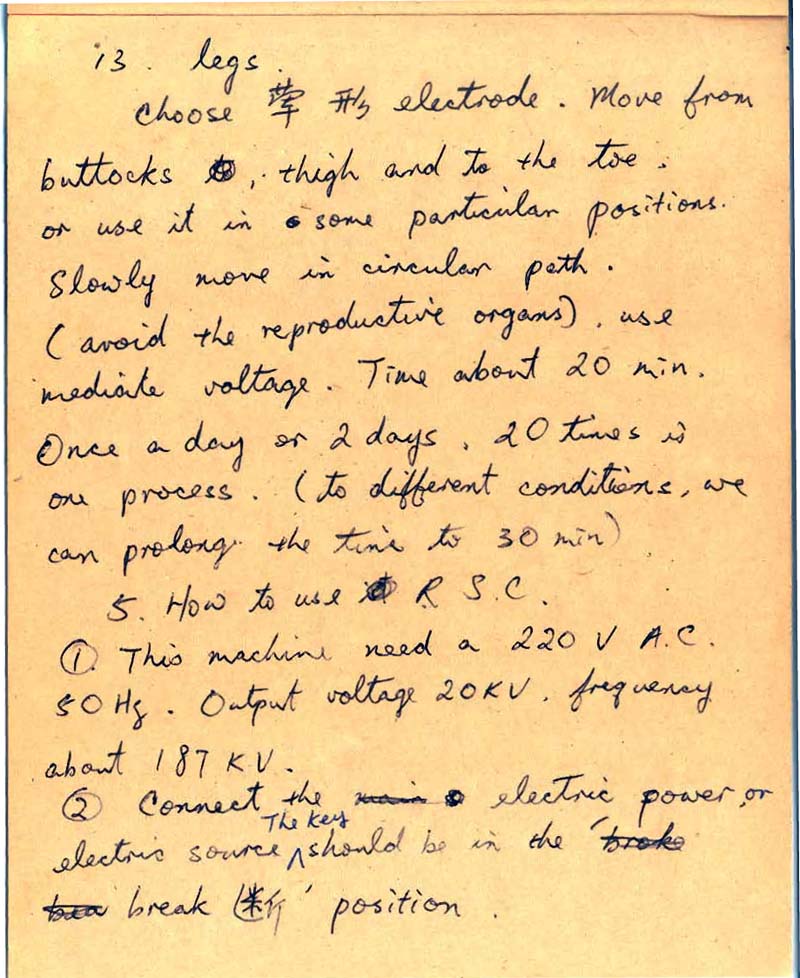 13. legs.
Choose 形 electrode. Move from
buttocks, thigh and to the toe.
or use it in some particular positions.
Slowly move in circular path.
(avoid the reproductive organs), use
mediate voltage. Time about 20 min.
Once a day or 2 days, 20 times is
one process. (to different conditions, we
can prolong the time to 30 min)
5. How to use R S.C.
①. This machine need a 220 V A.C.
50 Hz. Output voltage 20KV. frequency
about 187 KV.
② Connect the main electric power, or
electric source The key should be in the ' broke
break (断)' position.